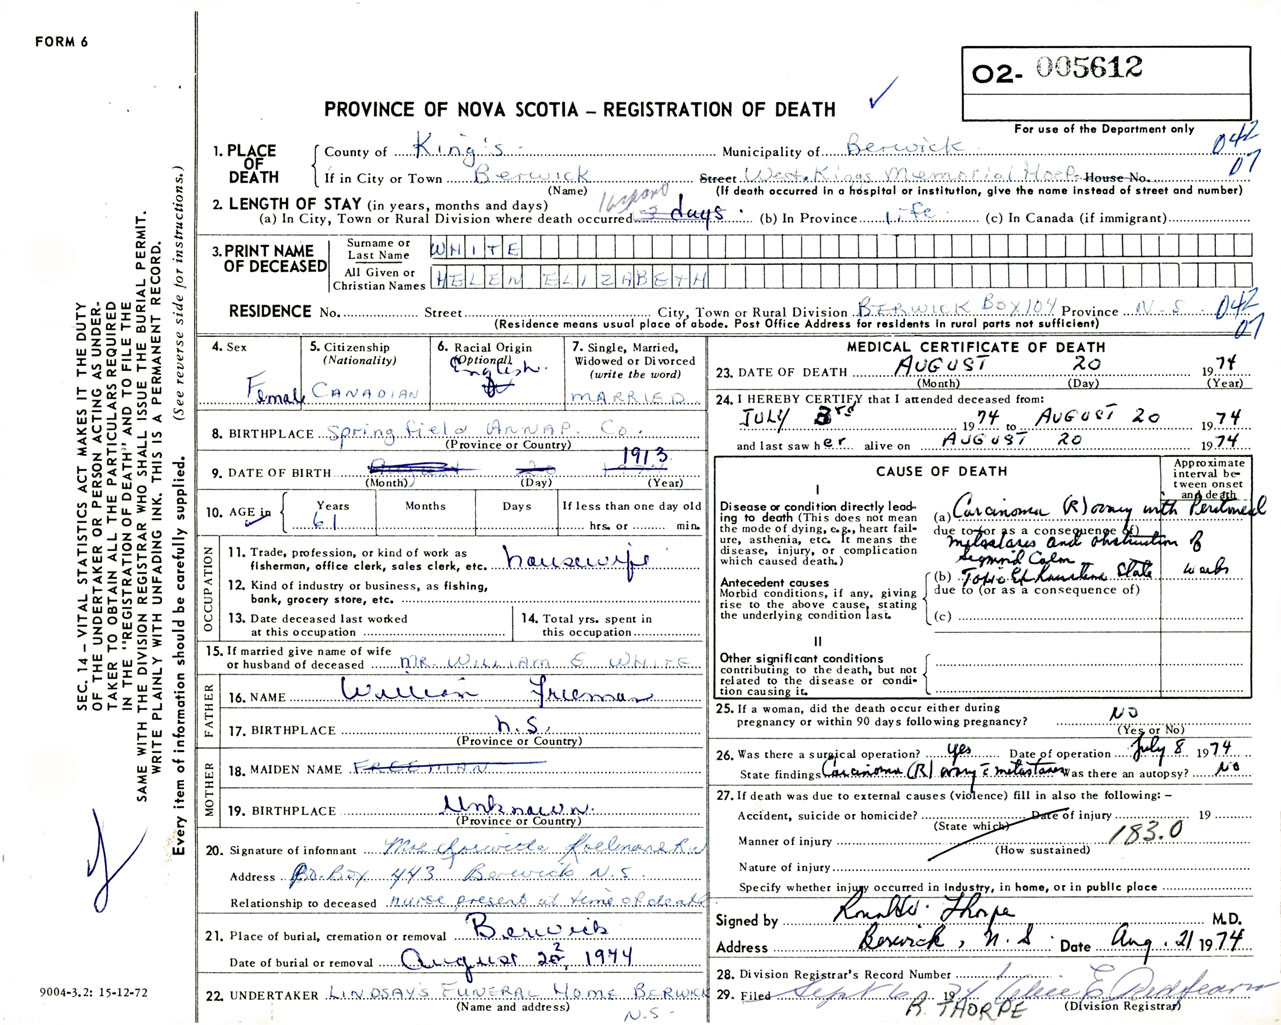 FORM 6
O2- 005612
PROVINCE OF NOVA SCOTIA – REGISTRATION OF DEATH
For use of the Department only
1. PLACE OF DEATH
County of King's Municipality of Berwick 042
If in City or Town Berwick Street West Kings Memorial Hosp House No. 07
(Name) (If death occurred in a hospital or institution, give the name instead of street and number)
2. LENGTH OF STAY (in years, months and days)
(a) In City, Town or Rural Division where death occurred days (b) In Province Life (c) In Canada (if immigrant)
3. PRINT NAME OF DECEASED
Surname or Last Name WHITE
All Given or Christian Names HELEN ELIZABETH
RESIDENCE No. Street City, Town or Rural Division BERWICK BOX 104 Province N.S. 042
(Residence means usual place of abode. Post Office Address for residents in rural parts not sufficient) 07
4. Sex Female
5. Citizenship (Nationality) CANADIAN
6. Racial Origin (Optional) English
7. Single, Married, Widowed or Divorced (write the word) MARRIED
8. BIRTHPLACE Springfield ANNAP. Co.
(Province or Country)
9. DATE OF BIRTH 1913
(Month) (Day) (Year)
10. AGE in Years 61 Months Days If less than one day old
hrs. or min.
OCCUPATION
11. Trade, profession, or kind of work as fisherman, office clerk, sales clerk, etc. housewife
12. Kind of industry or business, as fishing, bank, grocery store, etc.
13. Date deceased last worked at this occupation
14. Total yrs. spent in this occupation
15. If married give name of wife or husband of deceased MR. WILLIAM E WHITE
FATHER
16. NAME William Freeman
17. BIRTHPLACE N.S.
(Province or Country)
MOTHER
18. MAIDEN NAME FREEMAN
19. BIRTHPLACE Unknown.
(Province or Country)
20. Signature of informant Mrs
Address P.O. Box 443 Berwick N.S.
Relationship to deceased nurse present at time of death
21. Place of burial, cremation or removal Berwick
Date of burial or removal August 22, 1974
22. UNDERTAKER LINDSAY'S FUNERAL HOME BERWICK
(Name and address) N.S.
MEDICAL CERTIFICATE OF DEATH
23. DATE OF DEATH AUGUST 20 1974
(Month) (Day) (Year)
24. I HEREBY CERTIFY that I attended deceased from:
JULY 3rd 1974 to AUGUST 20 1974
and last saw her alive on AUGUST 20 1974
CAUSE OF DEATH
Approximate interval between onset and death
I
Disease or condition directly leading to death (This does not mean the mode of dying, e.g., heart failure, asthenia, etc. It means the disease, injury, or complication which caused death.)
(a) Carcinoma (R) ovary with Peritoneal
due to (or as a consequence of)
metastases and obstruction of
Sigmoid Colon
Antecedent causes
Morbid conditions, if any, giving rise to the above cause, stating the underlying condition last.
(b) Toxic Exhaustive State weeks
due to (or as a consequence of)
(c)
II
Other significant conditions
contributing to the death, but not related to the disease or condition causing it.
25. If a woman, did the death occur either during pregnancy or within 90 days following pregnancy? NO
(Yes or No)
26. Was there a surgical operation? Yes Date of operation July 8 1974
State findings Carcinoma (R) ovary c metastases Was there an autopsy? No
27. If death was due to external causes (violence) fill in also the following: –
Accident, suicide or homicide? Date of injury 19
(State which)
Manner of injury 183.0
(How sustained)
Nature of injury
Specify whether injury occurred in Industry, in home, or in public place
Signed by Ronald Thorpe M.D.
Address Berwick, N.S. Date Aug. 21 1974
28. Division Registrar's Record Number 1
29. Filed Sept 6 1974 Alice E
R. THORPE (Division Registrar)
SEC. 14 – VITAL STATISTICS ACT MAKES IT THE DUTY
OF THE UNDERTAKER OR PERSON ACTING AS UNDER-
TAKER TO OBTAIN ALL THE PARTICULARS REQUIRED
IN THE "REGISTRATION OF DEATH" AND TO FILE THE
SAME WITH THE DIVISION REGISTRAR WHO SHALL ISSUE THE BURIAL PERMIT.
WRITE PLAINLY WITH UNFADING INK. THIS IS A PERMANENT RECORD.
Every item of information should be carefully supplied. (See reverse side for instructions.)
9004-3.2: 15-12-72